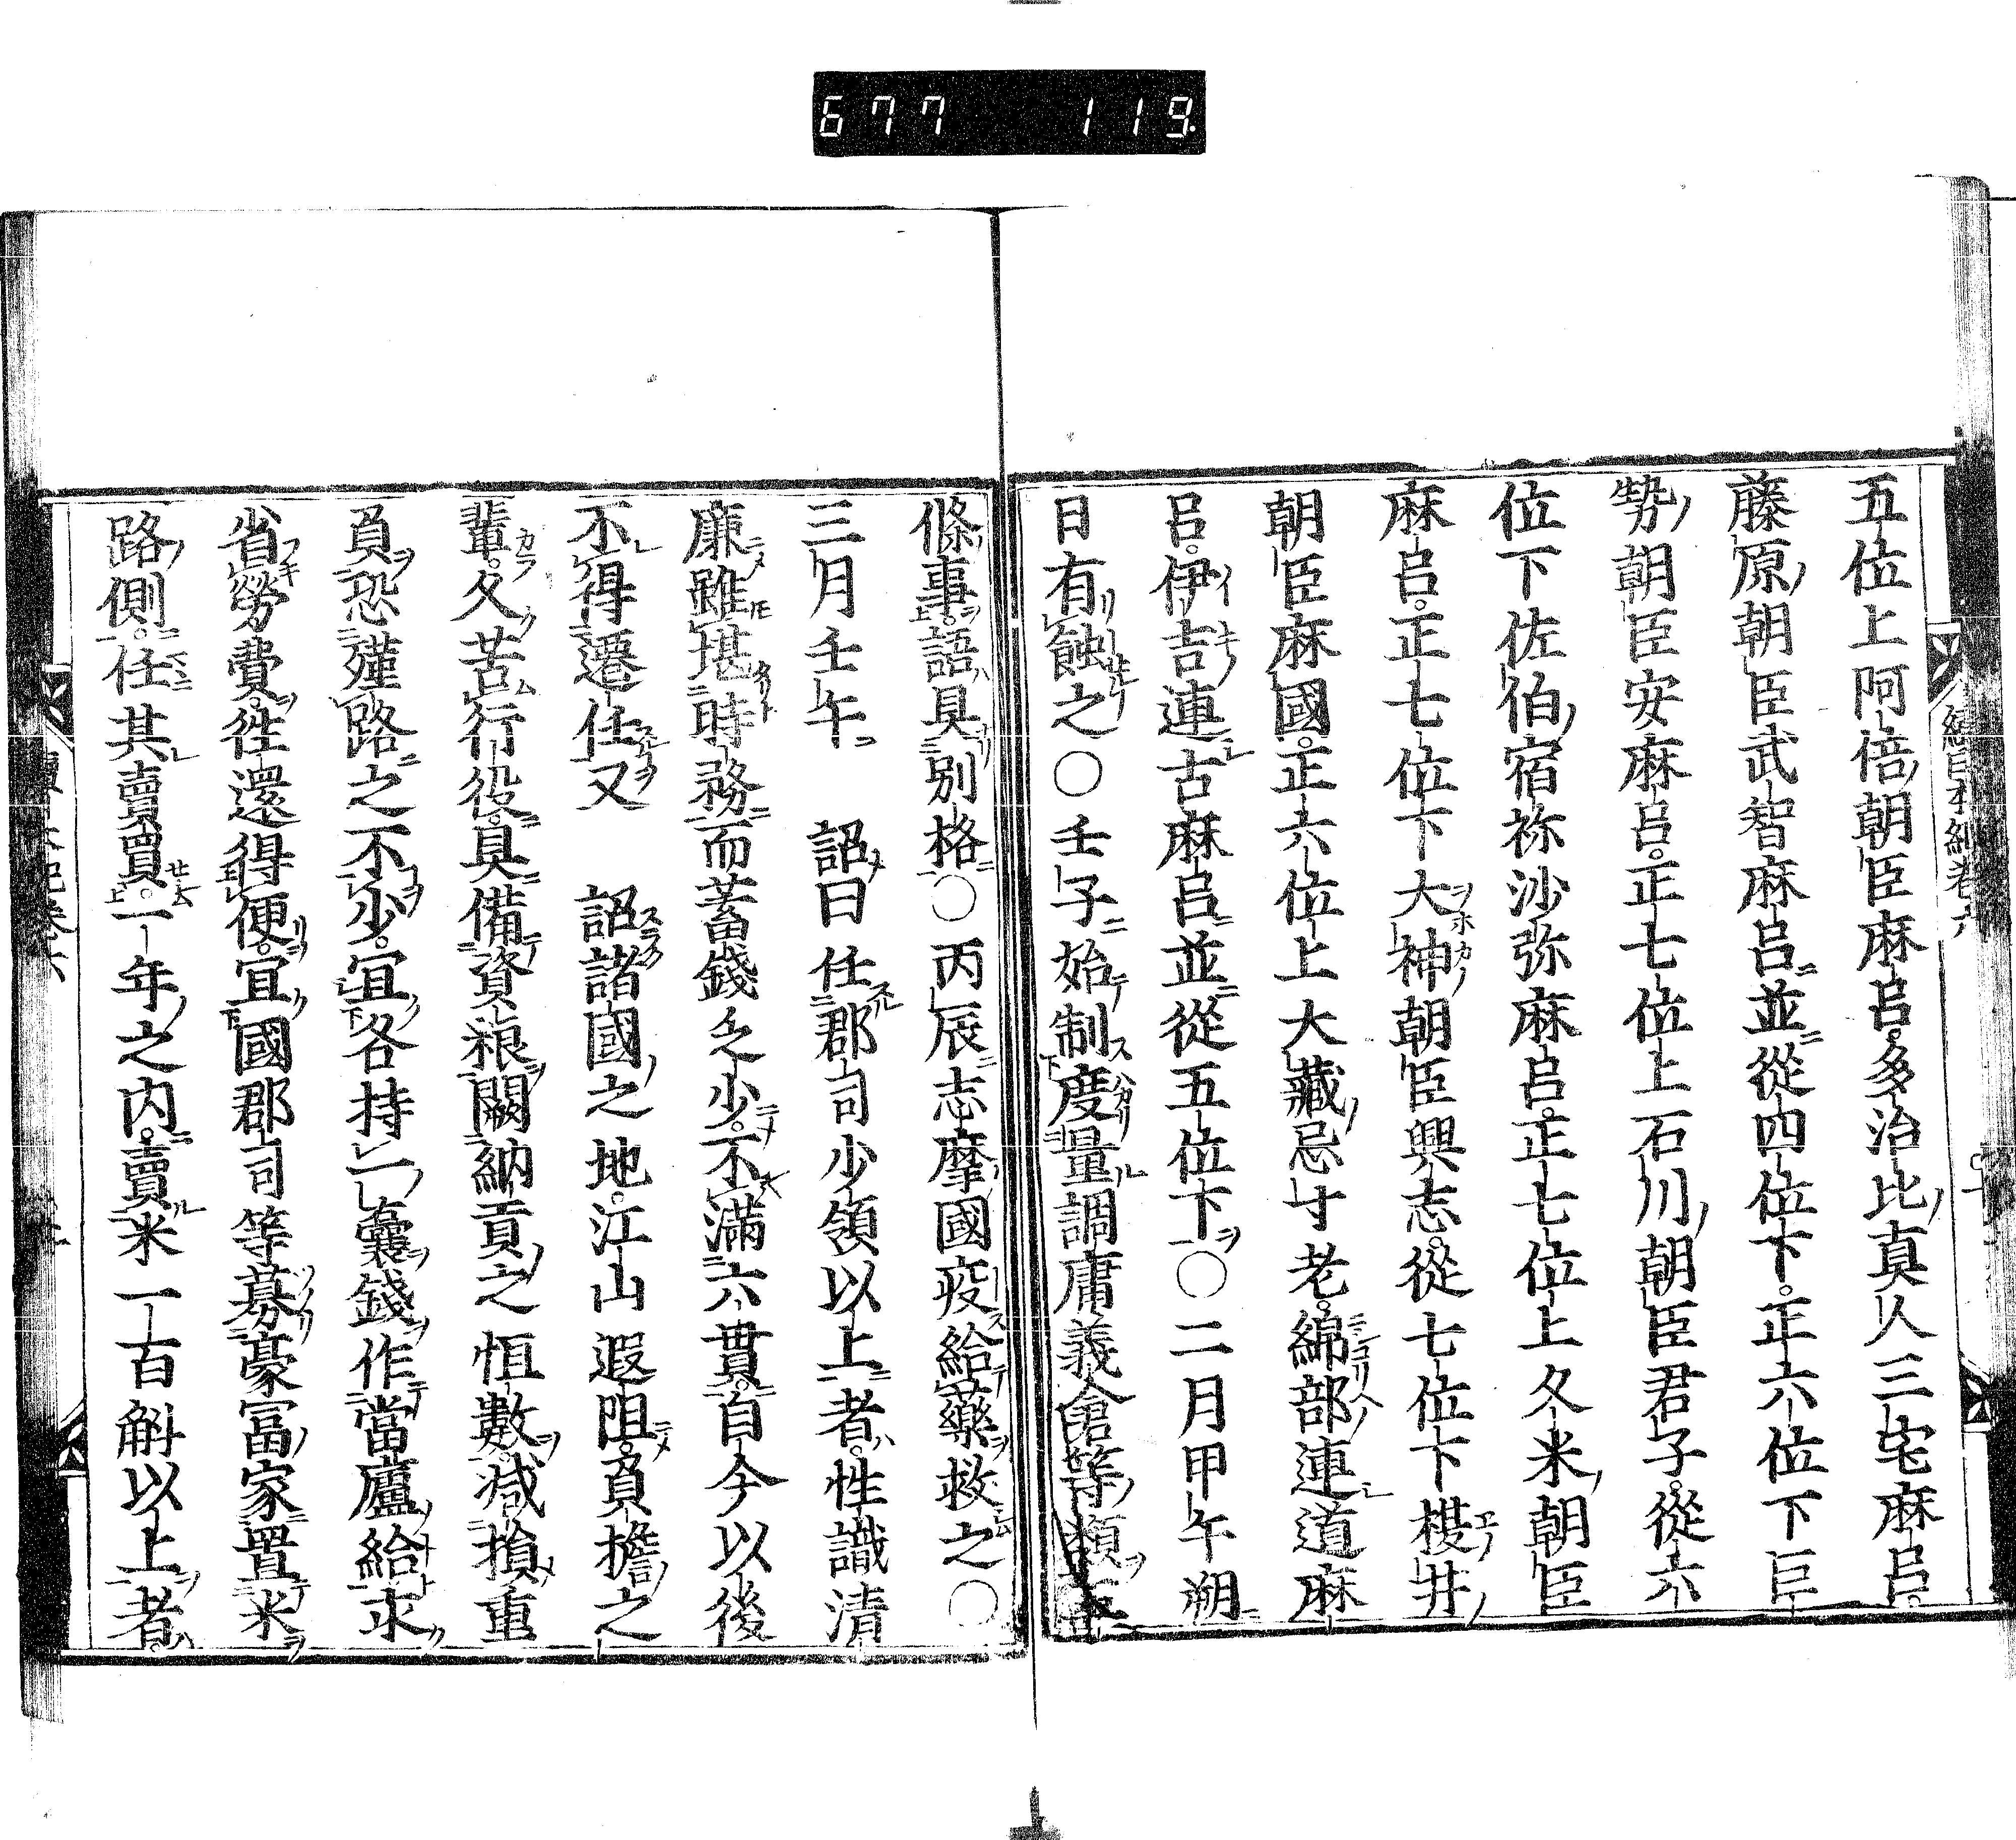 677 119.
五位上阿倍朝臣麻呂。多治比真人三宅麻呂。
藤原朝臣武智麻呂並從四位下。正六位下巨
勢朝臣安麻呂。正七位上石川朝臣君子。從六
位下佐伯宿祢沙弥麻呂。正七位上久米朝臣
麻呂。正七位下大神朝臣興志。從七位下榎井
朝臣麻國。正六位上大藏忌寸老。綿部連道麻
呂。伊吉連古麻呂並從五位下○二月甲午朔
日有蝕之○壬子始制度量調庸義倉等類五
條事。語具別格○丙辰志摩國疫給藥救之○
三月壬午 詔曰任郡司少領以上者。性識清
廉雖堪時務而蓄錢乏少。不滿六貫。自今以後
不得遷任又 詔諸國之地。江山遐阻。負擔之
輩。久苦行役。具備資粮闕納貢之恒數。減損重
負恐殣路之不少。宜各持一囊錢作當爐給永
省勞費。往還得便。宜國郡司等募豪富家置米
路側。任其賣買。一年之内。賣米一百斛以上者。
續日本紀卷六